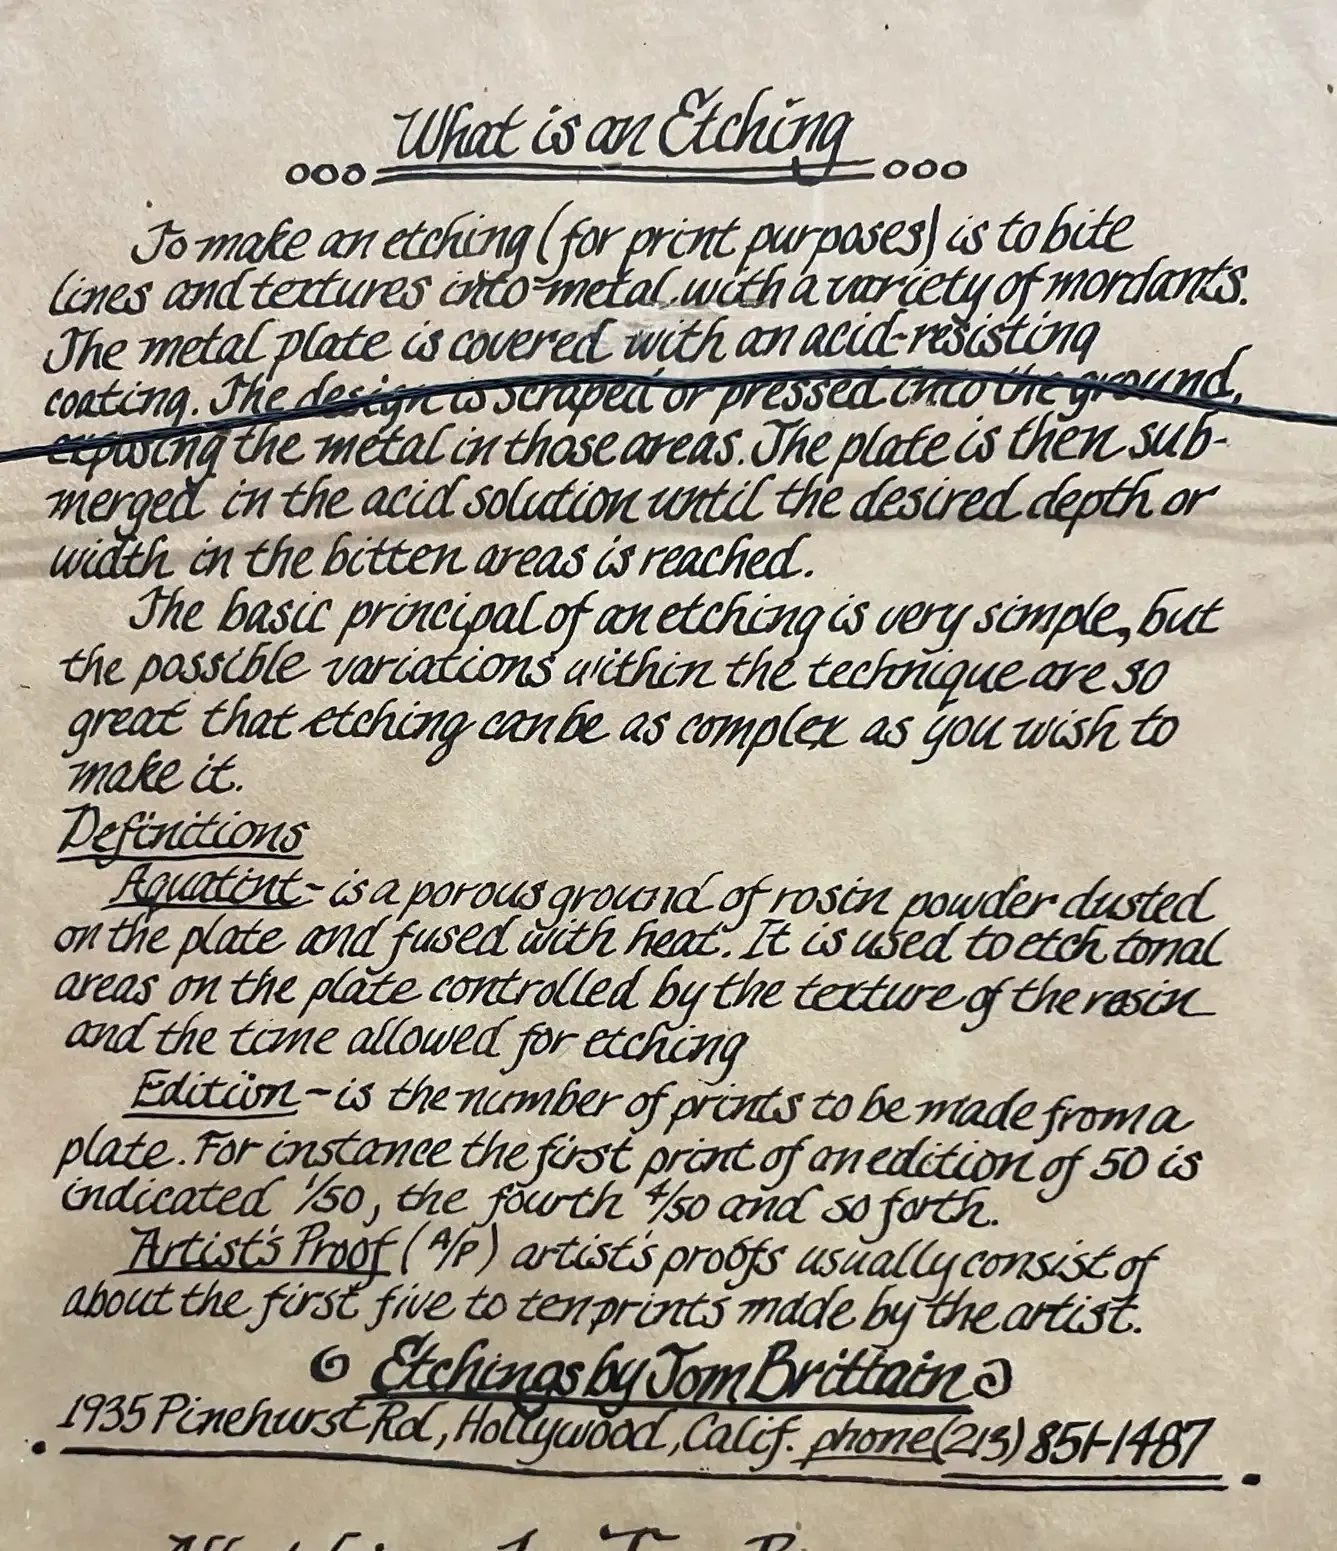 What is an Etching
To make an etching (for print purposes) is to bite
lines and textures into metal with a variety of mordants.
The metal plate is covered with an acid-resisting
coating. The design is scraped or pressed into the ground,
exposing the metal in those areas. The plate is then sub-
merged in the acid solution until the desired depth or
width in the bitten areas is reached.
The basic principal of an etching is very simple, but
the possible variations within the technique are so
great that etching can be as complex as you wish to
make it.
Definitions
Aquatint- is a porous ground of rosin powder dusted
on the plate and fused with heat. It is used to etch tonal
areas on the plate controlled by the texture of the rosin
and the time allowed for etching
Edition - is the number of prints to be made from a
plate. For instance the first print of an edition of 50 is
indicated 1/50, the fourth 4/50 and so forth.
Artist's Proof (A/P) artist's proofs usually consist of
about the first five to ten prints made by the artist.
Etchings by Tom Brittain
1935 Pinehurst Rd, Hollywood, Calif. phone (213) 851-1487